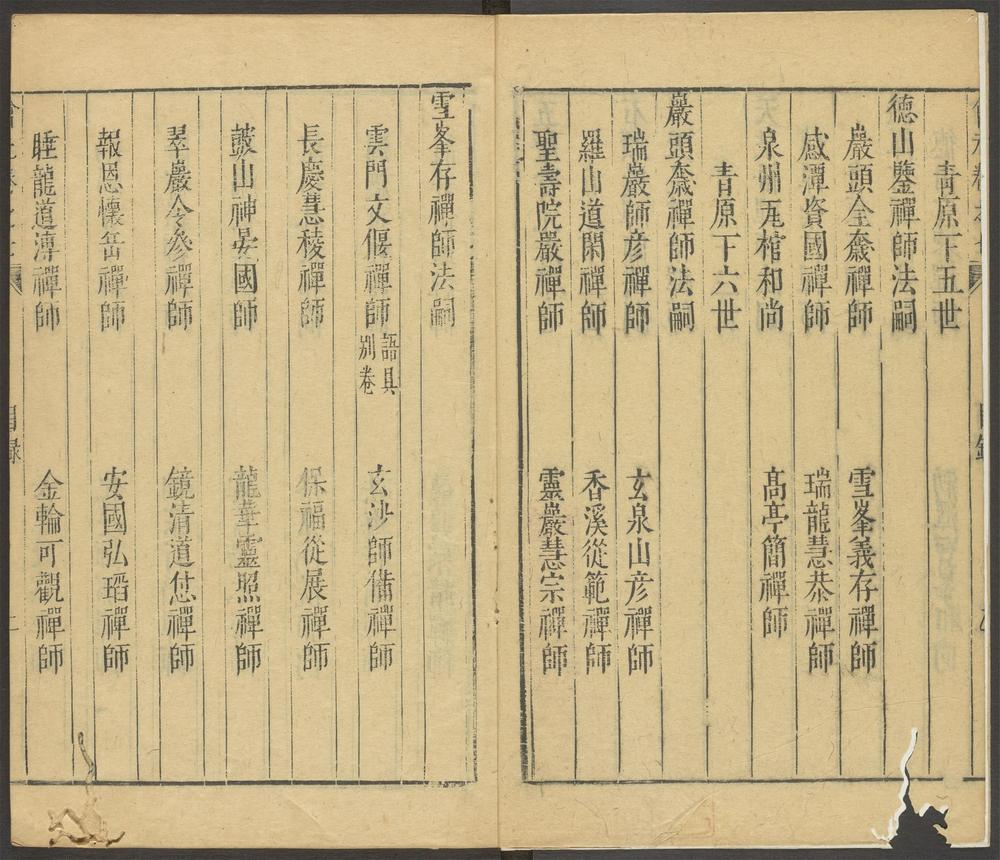 青原下五世
德山鑒禪師法嗣
巖頭全奯禪師　雪峯義存禪師
感潭資國禪師　瑞龍慧恭禪師
泉州瓦棺和尚　高亭簡禪師
青原下六世
巖頭奯禪師法嗣
瑞巖師彥禪師　玄泉山彥禪師
羅山道閑禪師　香溪從範禪師
聖壽院嚴禪師　靈巖慧宗禪師
雪峯存禪師法嗣
雲門文偃禪師語具別卷　玄沙師備禪師
長慶慧稜禪師　保福從展禪師
鼓山神晏國師　龍華靈照禪師
翠巖令參禪師　鏡清道怤禪師
報恩懷岳禪師　安國弘瑫禪師
睡龍道溥禪師　金輪可觀禪師
目錄